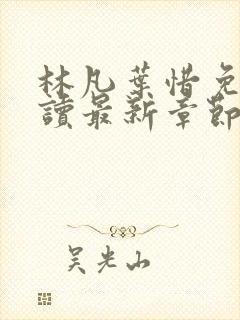 林凡葉惜免
讀最新章節
吳光山